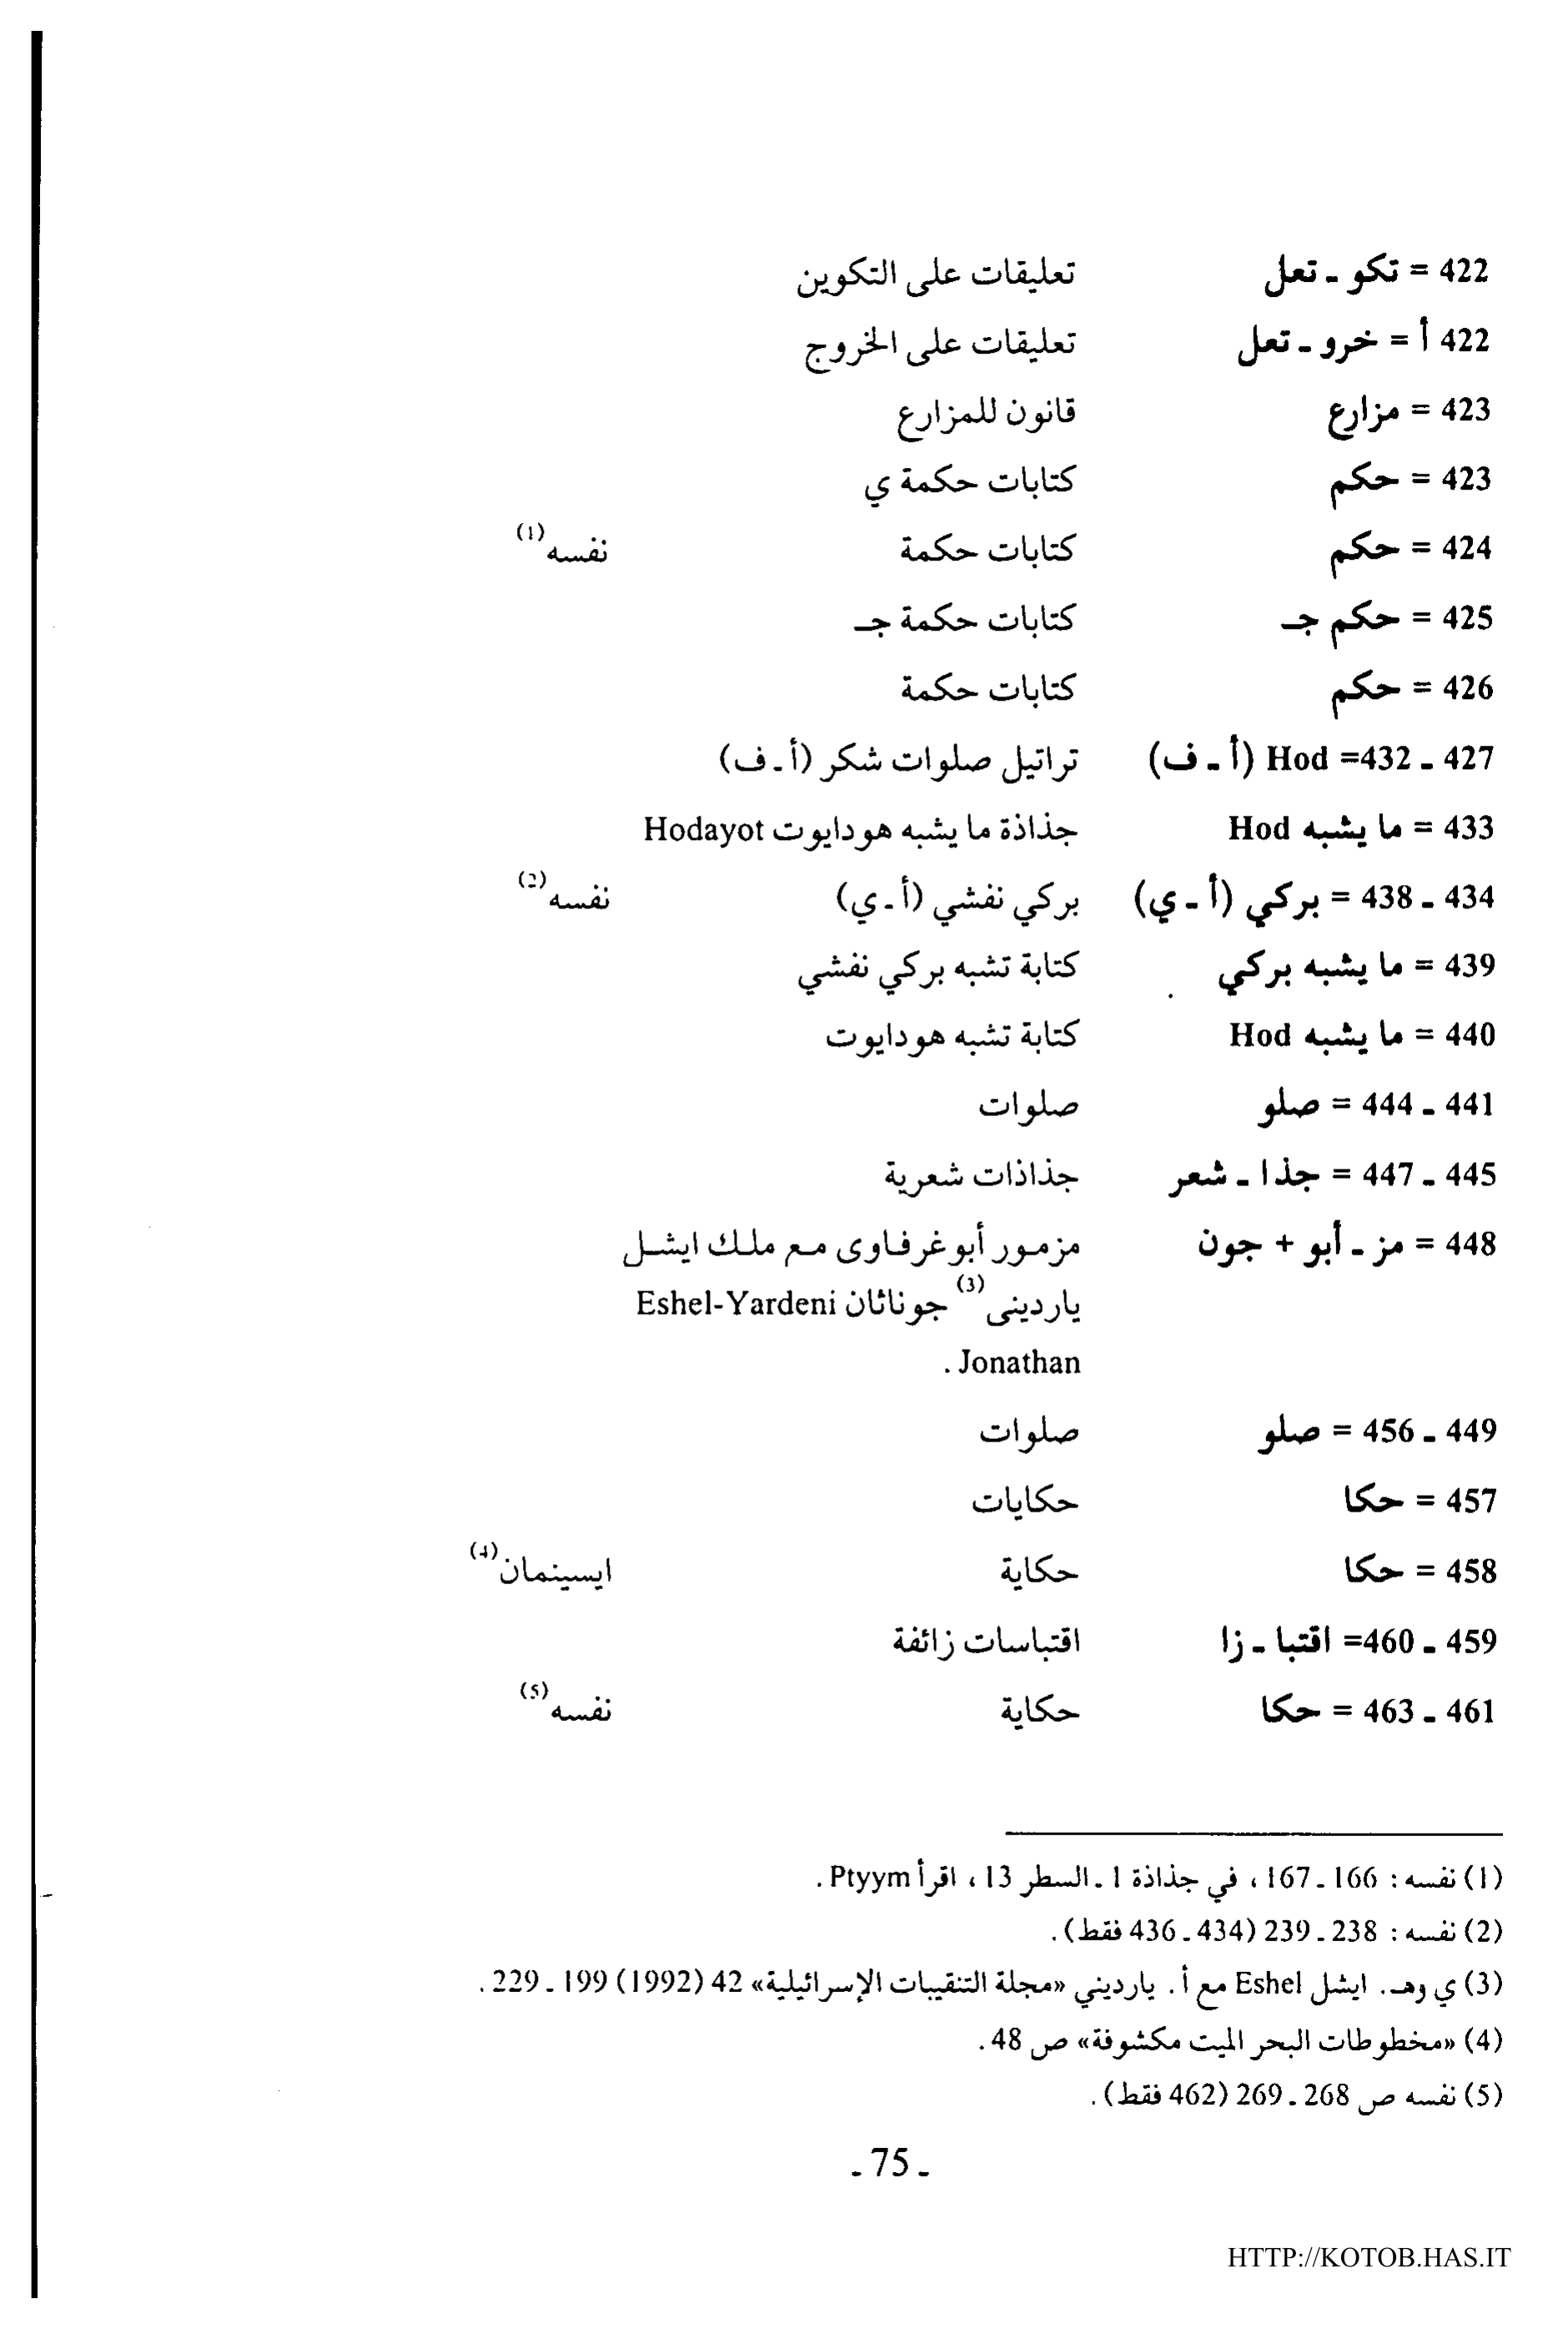 422 = تكو ـ تعل تعليقات على التكوين
422 أ = خرو ـ تعل تعليقات على الخروج
423 = مزارع قانون للمزارع
423 = حكم كتابات حكمة ي
424 = حكم كتابات حكمة نفسه(1)
425 = حكم جـ كتابات حكمة جـ
426 = حكم كتابات حكمة
427 ـ 432= Hod (أ ـ ف) تراتيل صلوات شكر (أ ـ ف)
433 = ما يشبه Hod جذاذة ما يشبه هودايوت Hodayot
434 ـ 438 = بركي (أ ـ ي) بركي نفشي (أ ـ ي) نفسه(2)
439 = ما يشبه بركي كتابة تشبه بركي نفشي
440 = ما يشبه Hod كتابة تشبه هودايوت
441 ـ 444 = صلو صلوات
445 ـ 447 = جذا ـ شعر جذاذات شعرية
448 = مز ـ أبو + جون مزمور أبوغرفاوى مع ملك ايشل
يارديني(3) جوناثان Eshel-Yardeni
Jonathan .
449 ـ 456 = صلو صلوات
457 = حكا حكايات
458 = حكا حكاية ايسينمان(4)
459 ـ 460= اقتبا ـ زا اقتباسات زائفة
461 ـ 463 = حكا حكاية نفسه(5)
(1) نفسه : 166 ـ 167 ، في جذاذة 1 ـ السطر 13 ، اقرأ Ptyym .
(2) نفسه : 238 ـ 239 (434 ـ 436 فقط) .
(3) ي وهـ. ايشل Eshel مع أ . يارديني «مجلة التنقيبات الإسرائيلية» 42 (1992) 199 ـ 229 .
(4) «مخطوطات البحر الميت مكشوفة» ص 48 .
(5) نفسه ص 268 ـ 269 (462 فقط) .
ـ 75 ـ
HTTP://KOTOB.HAS.IT